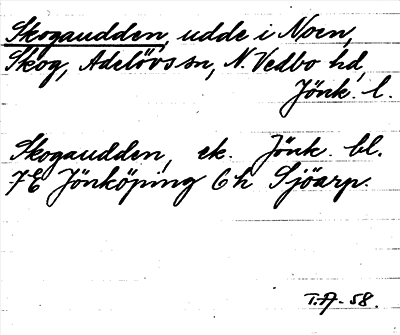 Skogaudden, udde i Noen,
Skog, Adelövs sn, N. Vedbo hd,
Jönk. l.
Skogaudden, ek. Jönk. bl.
7E Jönköping 6h Sjöarp.
T.A-58.